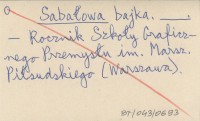 Sabałowa bajka. —.
— Rocznik Szkoły Graficz-
nego Przemysłu im. Marsz.
Piłsudskiego (Warszawa).
87/043/0693